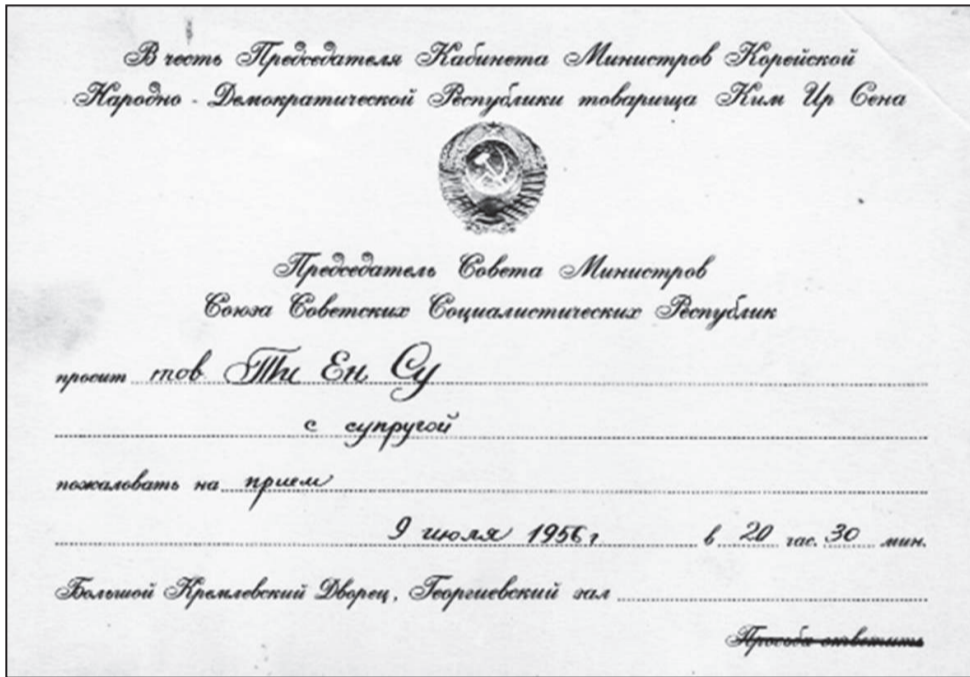 В честь Председателя Кабинета Министров Корейской
Народно-Демократической Республики товарища Ким Ир Сена
Председатель Совета Министров
Союза Советских Социалистических Республик
просит тов. Ти Ен Су
с супругой
пожаловать на прием
9 июля 1956 г в 20 час. 30 мин.
Большой Кремлевский Дворец, Георгиевский зал
Просьба ответить